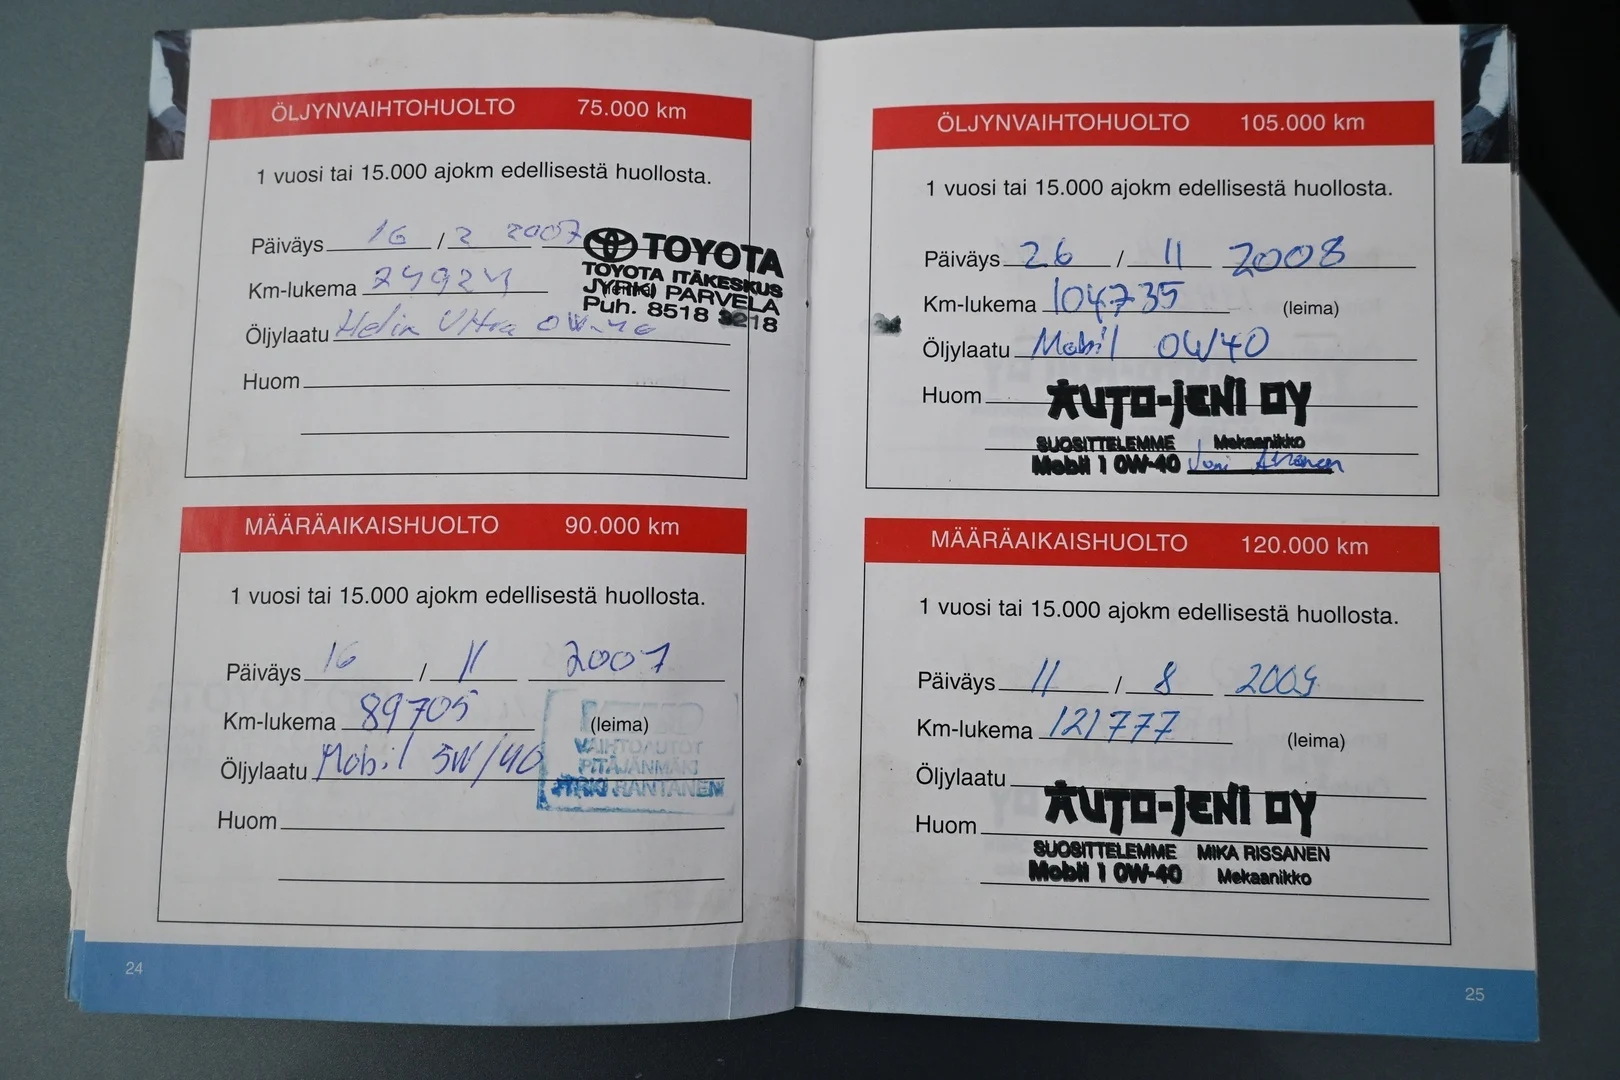 ÖLJYNVAIHTOHUOLTO 75.000 km
1 vuosi tai 15.000 ajokm edellisestä huollosta.
Päiväys 16 / 2 2007
Km-lukema 74924
Öljylaatu Helix Ultra 0W-40
Huom
TOYOTA
TOYOTA ITÄKESKUS
JYRKI PARVELA
Puh. 8518 3218
MÄÄRÄAIKAISHUOLTO 90.000 km
1 vuosi tai 15.000 ajokm edellisestä huollosta.
Päiväys 16 / 11 2007
Km-lukema 89705 (leima)
Öljylaatu Mobil 5W/40
Huom
VAIHTOAUTOT
PITÄJÄNMÄKI
RANTANEN
24
ÖLJYNVAIHTOHUOLTO 105.000 km
1 vuosi tai 15.000 ajokm edellisestä huollosta.
Päiväys 26 / 11 2008
Km-lukema 104735 (leima)
Öljylaatu Mobil 0W40
Huom
AUTO-JENI OY
SUOSITTELEMME Mekaanikko
Mobil 1 0W-40
MÄÄRÄAIKAISHUOLTO 120.000 km
1 vuosi tai 15.000 ajokm edellisestä huollosta.
Päiväys 11 / 8 2009
Km-lukema 121777 (leima)
Öljylaatu
Huom
AUTO-JENI OY
SUOSITTELEMME MIKA RISSANEN
Mobil 1 0W-40 Mekaanikko
25